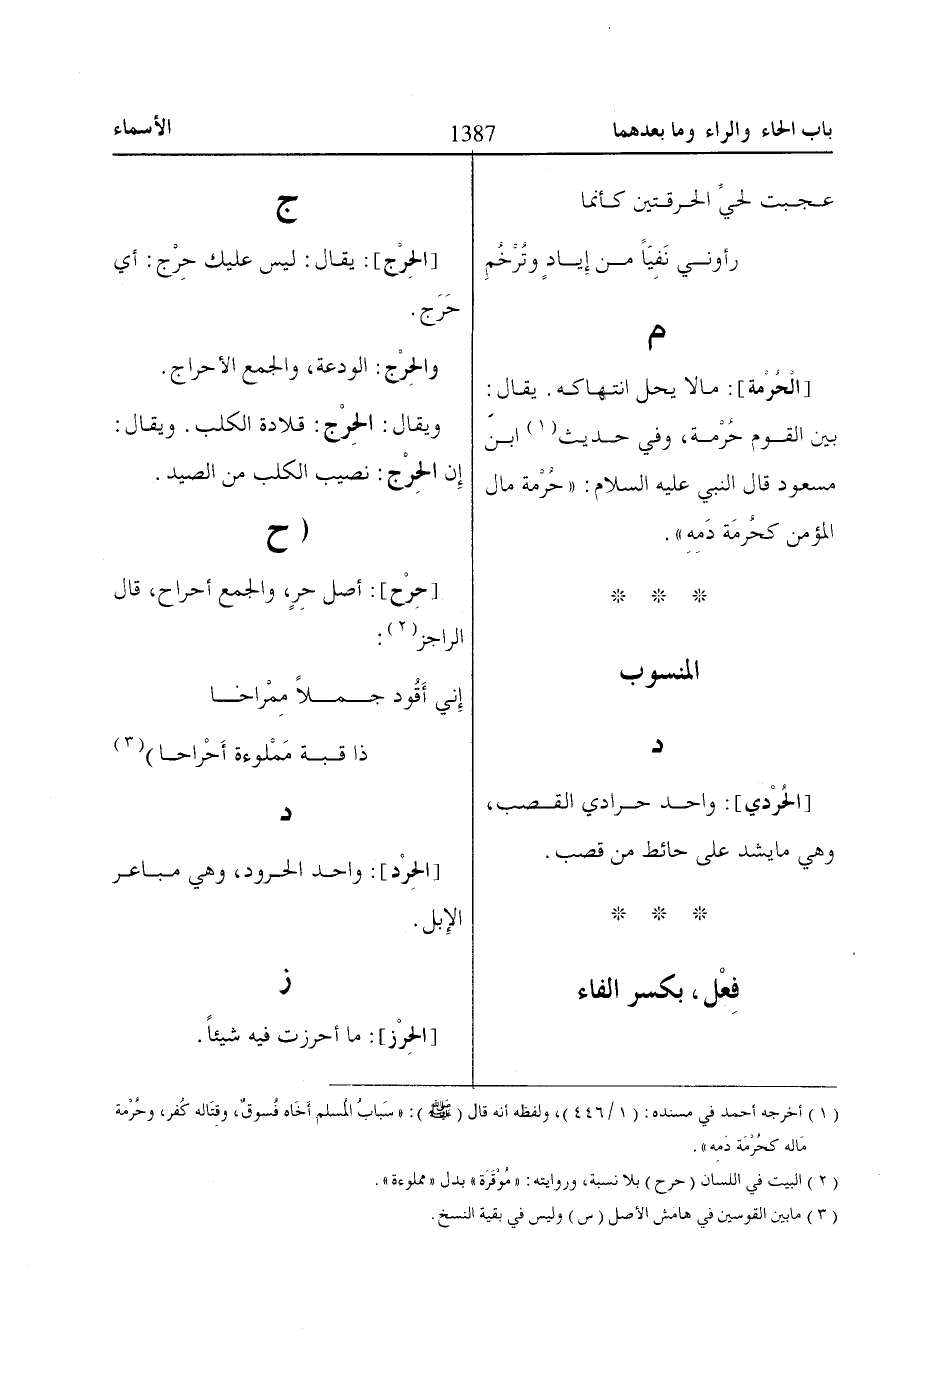 باب الحاء والراء وما بعدهما
1387
الأسماء
عجبت لحيِّ الحرقتين كأنما
رأوني نَفِيّاً من إيادٍ وتُرْخُمِ
م
[الْحُرْمة]: مالا يحل انتهاكه. يقال:
بين القوم حُرْمة، وفي حديث(١) ابن
مسعود قال النبي عليه السلام: «حُرْمة مال
المؤمن كحُرمَة دَمِهِ».
* * *
المنسوب
د
[الحُرْدي]: واحد حرادي القصب،
وهي مايشد على حائط من قصب.
* * *
فِعْل، بكسر الفاء
ج
[الحِرْج]: يقال: ليس عليك حِرْج: أي
حَرَج.
والحِرْج: الودعة، والجمع الأحراج.
ويقال: الحِرْج: قلادة الكلب. ويقال:
إن الحِرْج: نصيب الكلب من الصيد.
(ح
[حِرْح]: أصل حِرٍ، والجمع أحراح، قال
الراجز(٢):
إني أَقُود جملاً مِمْراحا
ذا قبة مَمْلوءة أَحْراحا)(٣)
د
[الحِرْد]: واحد الحرود، وهي مباعر
الإبل.
ز
[الحِرْز]: ما أحرزت فيه شيئاً.
(١) أخرجه أحمد في مسنده: (٤٤٦/١)، ولفظه أنه قال (ﷺ): «سَبابُ المُسلم أخَاه فُسوقٌ، وقتَاله كُفر، وحُرْمة
مَاله كحُرْمَة دَمه».
(٢) البيت في اللسان (حرح) بلا نسبة، وروايته: «مُوْقَرَة» بدل «مملوءة».
(٣) مابين القوسين في هامش الأصل (س) وليس في بقية النسخ.